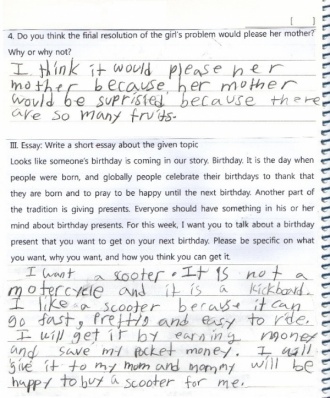 [ ]
4. Do you think the final resolution of the girl's problem would please her mother?
Why or why not?
I think it would please her
mother because her mother
would be supristed because there
are so many fruits.
III. Essay: Write a short essay about the given topic
Looks like someone's birthday is coming in our story. Birthday. It is the day when
people were born, and globally people celebrate their birthdays to thank that
they are born and to pray to be happy until the next birthday. Another part of
the tradition is giving presents. Everyone should have something in his or her
mind about birthday presents. For this week, I want you to talk about a birthday
present that you want to get on your next birthday. Please be specific on what
you want, why you want, and how you think you can get it.
I want a scooter. It is not a
motercycle and it is a kickboard.
I like a scooter because it can
go fast, pretty and easy to ride.
I will get it by earning money
and save my pocket money. I will
give it to my mom and mommy will be
happy to buy a scooter for me.